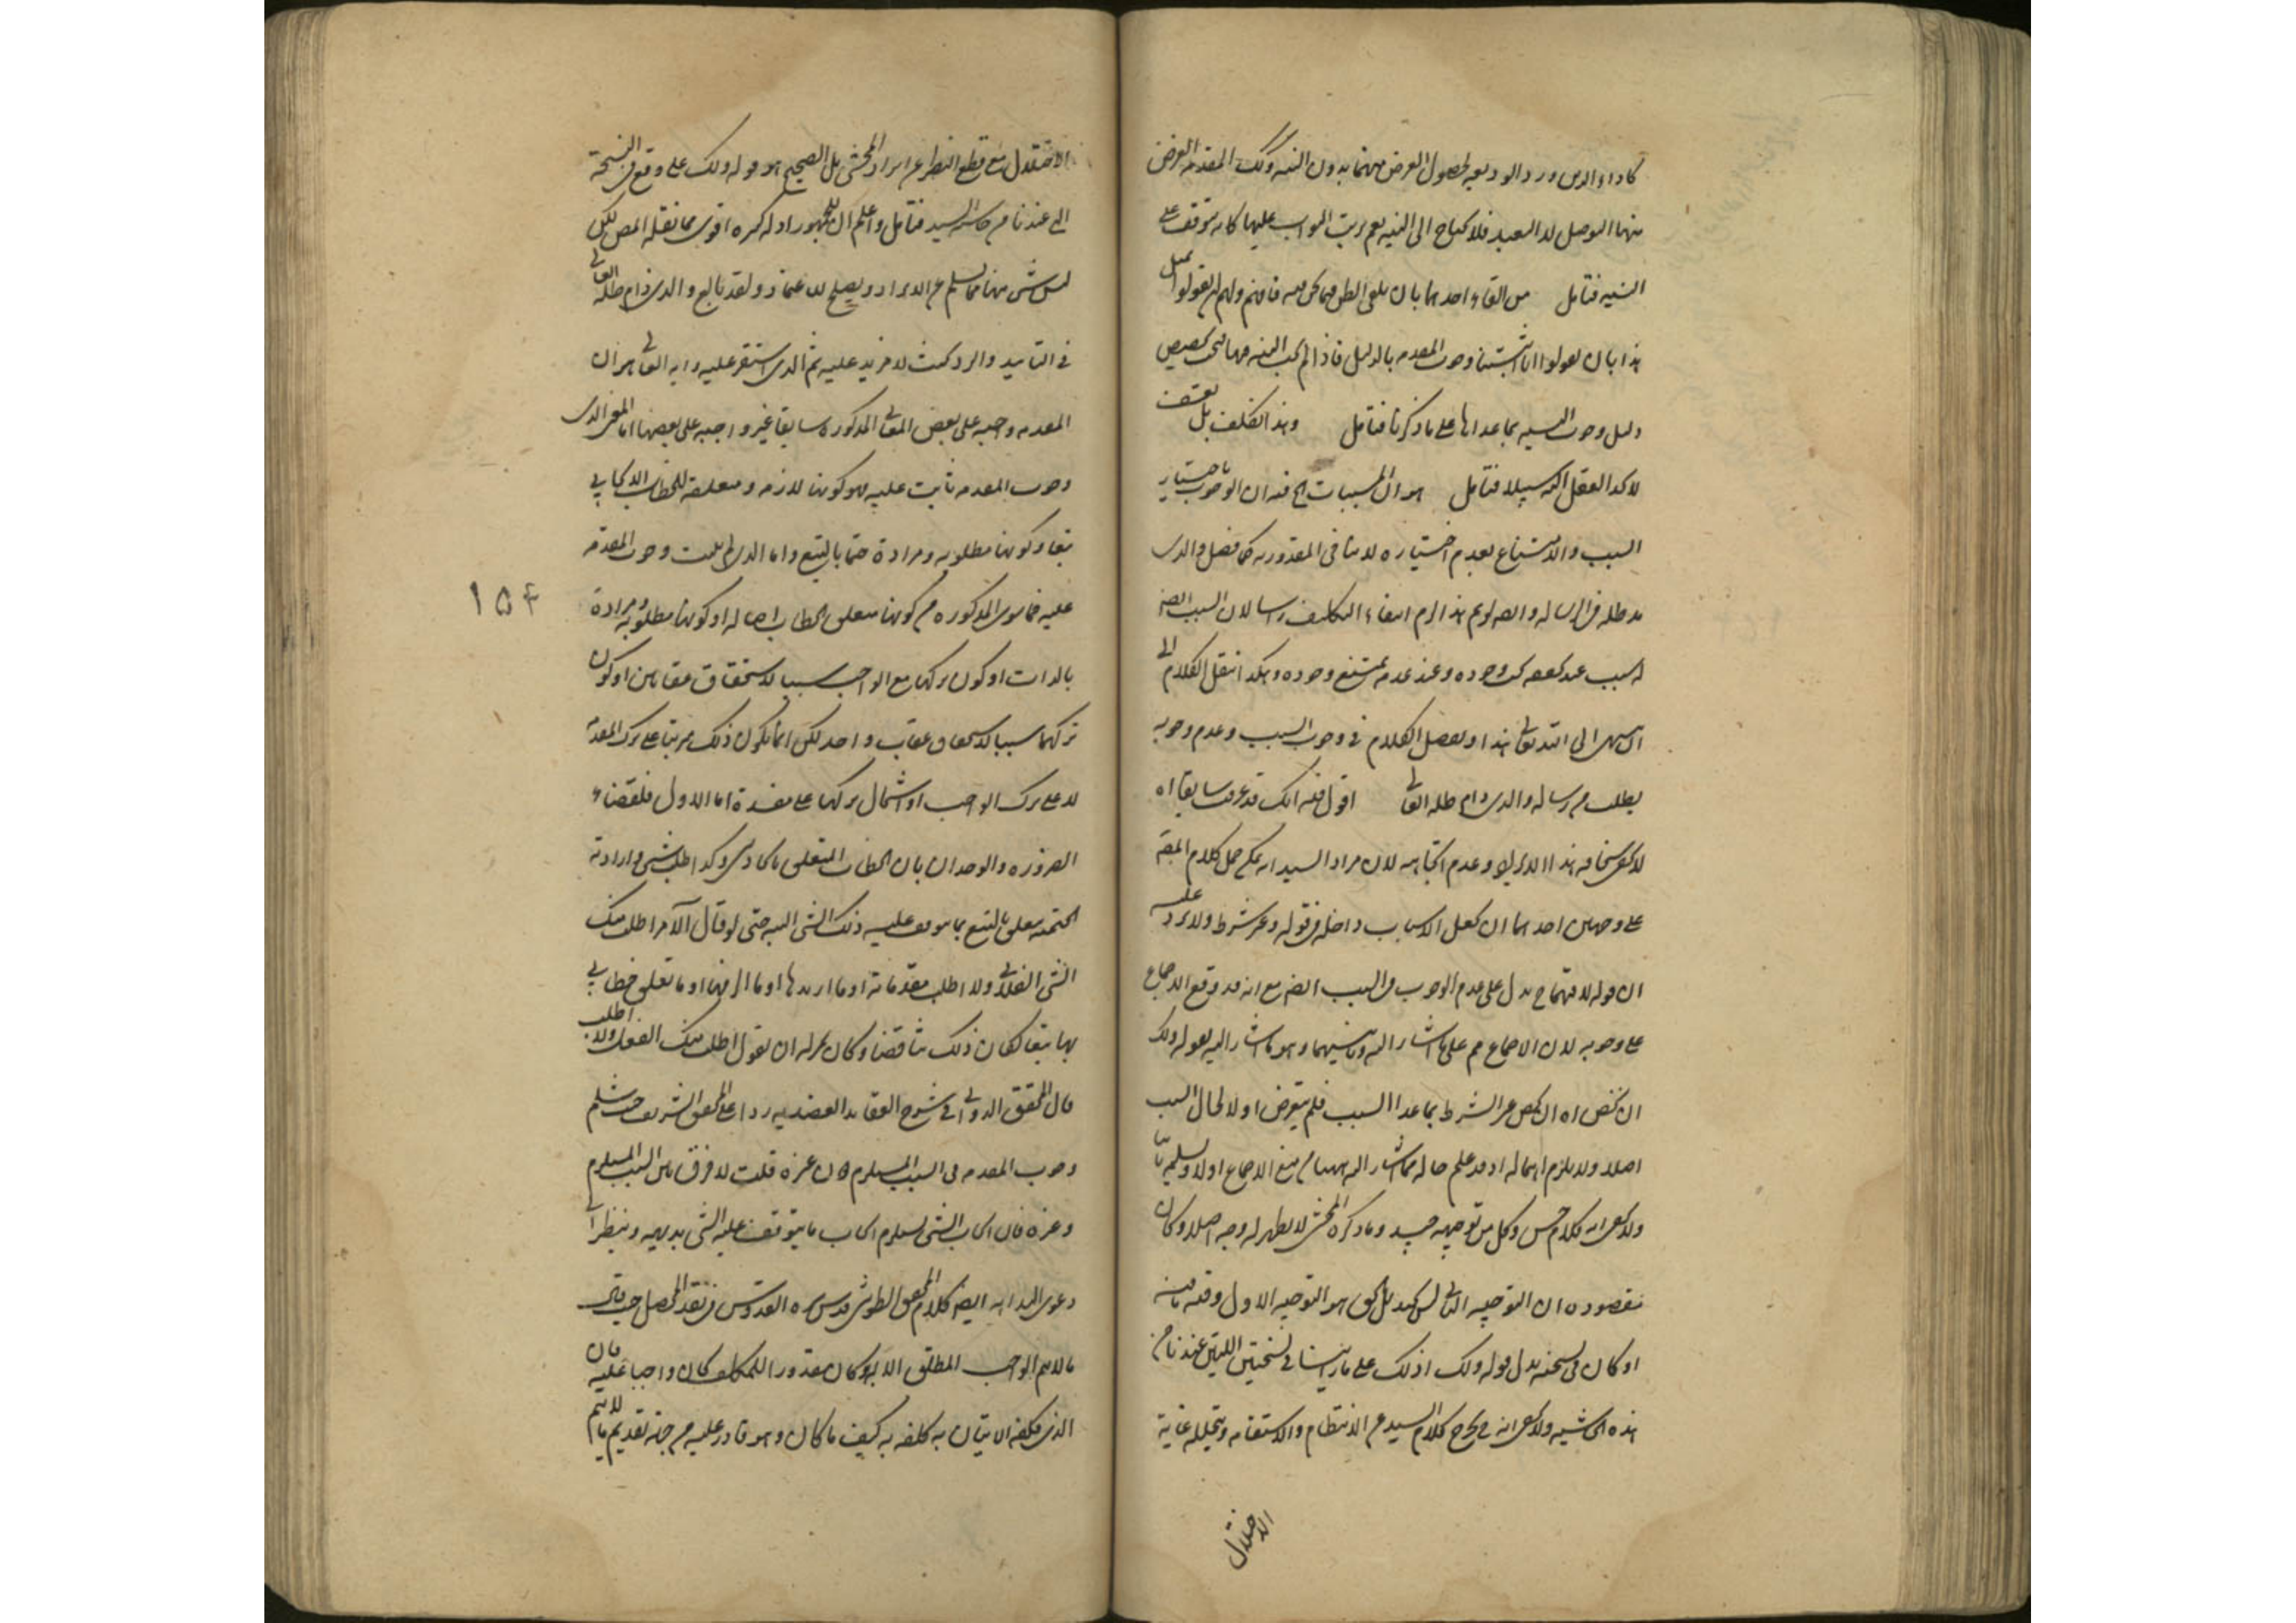 كاداء الدين ورد الوديعه لحصول الغرض منهما بدون النيه وكك المقدمه الغرض
منها التوصل لا التعبد فلا يحتاج الى النيه نعم ترتب الثواب عليها كانه يتوقف على
النيه فتامل من القاء احدهما بان يلغى الظن فيما نحن فيه فافهم ولهم ان يقولوا
هذا بان يقولوا انا اثبتنا وجوب المقدمه بالدليل فاذا لم يجب النيه فيها فيجب تخصيص
دليل وجوب النيه بما عداها على ما ذكرنا فتامل وهذا تكلف بل تعسف
لا يجد العقل اليه سبيلا فتامل هو ان المسببات الخ فيه ان الوجوب باختيار
السبب والامتناع بعدم اختياره لا ينافى المقدوريه كما فصل والدى
مد ظله فى الرساله وايضا لو تم هذا لزم انتفاء التكليف راسا لان السبب ايضا
له سبب عند تحققه يجب وجوده وعند عدمه يمتنع وجوده وهكذا ننقل الكلام الى
ان ينتهى الى الله تعالى هذا وتفصيل الكلام فى وجوب السبب وعدم وجوبه
يطلب من رساله والدى دام ظله العالى اقول فيه انك قد عرفت سابقا اه
لا يخفى سخافه هذا الايراد وعدم اتجاهه لان مراد السيد انه يمكن حمل كلام المصنف
على وجهين احدهما ان يجعل الاسباب داخله فى قوله وغير شرط ولا يرد عليه
ان قوله لا فيهما يدل على عدم الوجوب فى السبب ايضا مع انه قد وقع الاجماع
على وجوبه لان الاجماع مم على ما اشار اليه وثانيهما وهو ما اشار اليه بقوله ولك
ان تخص اه ان يخص غير الشرط بما عدا السبب فلم يتعرض اولا لحال السبب
اصلا ولا يلزم اهماله اذ قد علم حاله مما اشار اليه ههنا من منع الاجماع اولا وتسليمه ثانيا
ولا يخفى انه كلام حسن وكل من توجيهيه جيد وما ذكره المحشى لا يظهر له وجه اصلا وكان
مقصوده ان التوجيه الثانى ليس بجيد بل الحق هو التوجيه الاول وفيه ما فيه
او كان فى نسخته بدل قوله ولك اذ لك على ما راينا فى نسختين اللتين عندنا من
هذه الحاشيه ولا يخفى انه يخرج كلام السيد عن الانتظام والاستقامه ويختل غاية
الاختلال
الاختلال مع قطع النظر عن ايراد المحشى بل الصحيح هو قوله ولك على ما وقع فى النسخة
التى عندنا من حاشيه السيد فتامل واعلم ان للجمهور ادله كثيره اقوى مما نقله المص لكن
ليس شىء منها مما يسلم عن الايراد ويصلح للاعتماد ولقد بالغ والدى دام ظله العالى
فى التاييد والرد بحيث لا مزيد عليه ثم الذى استقر عليه رايه العالى هو ان
المقدمه واجبه على بعض المعانى المذكوره سابقا غير واجبه على بعضها اما المعنى الذى
وجوب المقدمه ثابت عليه فهو كونها لازمه ومتعلقه للخطاب الايجابى
تبعا وكونها مطلوبه ومراده حتما بالتبع واما الذى لم يثبت وجوب المقدمه
عليه فما سوى المذكوره من كونها متعلق الخطاب اصاله او كونها مطلوبه ومرادة
بالذات او كون تركها مع الواجب سببا لاستحقاق عقابين او كون
تركها سببا لاستحقاق عقاب واحد لكن انما يكون ذلك مرتبا على ترك المقدمه
لا على ترك الواجب او اشتمال تركها على مفسدة اما الاول فلقضاء
الضروره والوجدان بان الخطاب المتعلق بايجاد شى وكذا طلب شى وارادته
الحتميه متعلق بالتبع بما يتوقف عليه ذلك الشى البته حتى لو قال الآمر اطلب منك
الشى الفلانى ولا اطلب مقدماته او ما اريدها او ما الزمها او ما تعلق خطابى
بها تبعا لكان ذلك متناقضا وكان بمنزله ان يقول اطلب منك الفعل ولا اطلب
قال المحقق الدوانى فى شرح العقايد العضديه ردا على المحقق الشريف حيث سلم
وجوب المقدمه فى السبب المستلزم دون غيره قلت لا فرق بين السبب المستلزم
وغيره فان ايجاب الشى يستلزم ايجاب ما يتوقف عليه الشى بديهه وينظر الى
دعوى البداهه ايضا كلام المحقق الطوسى قدس سره القدوسى فى نقد المحصل حيث قال
ما لا يتم الواجب المطلق الا به وكان مقدورا للمكلف كان واجبا عليه فان
الذى كلفه الاتيان به كلفه به كيف ما كان وهو قادر عليه من جهة تقديم ما لا يتم
۱۵۴